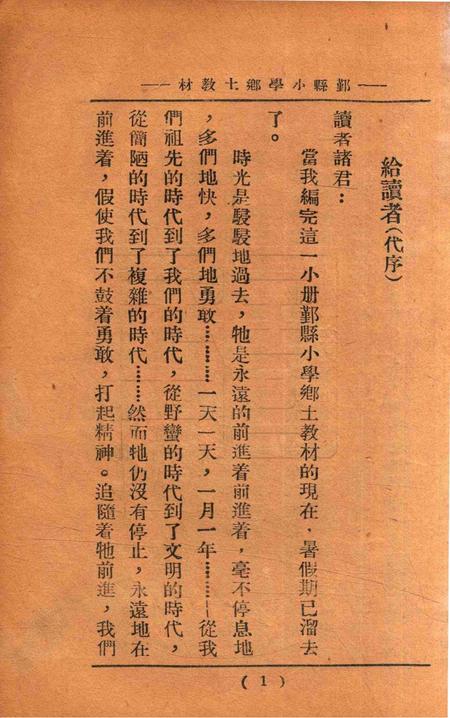 鄞縣小學鄉土教材
給讀者(代序)
讀者諸君：
當我編完這一小册鄞縣小學鄉土教材的現在，暑假期已溜去
了。
時光是駸駸地過去，牠是永遠的前進着前進着，毫不停息地
，多們地快，多們地勇敢………一天一天，一月一年………—從我
們祖先的時代到了我們的時代，從野蠻的時代到了文明的時代，
從簡陋的時代到了複雜的時代………然而牠仍沒有停止，永遠地在
前進着，假使我們不鼓着勇敢，打起精神。追隨着牠前進，我們
(1)